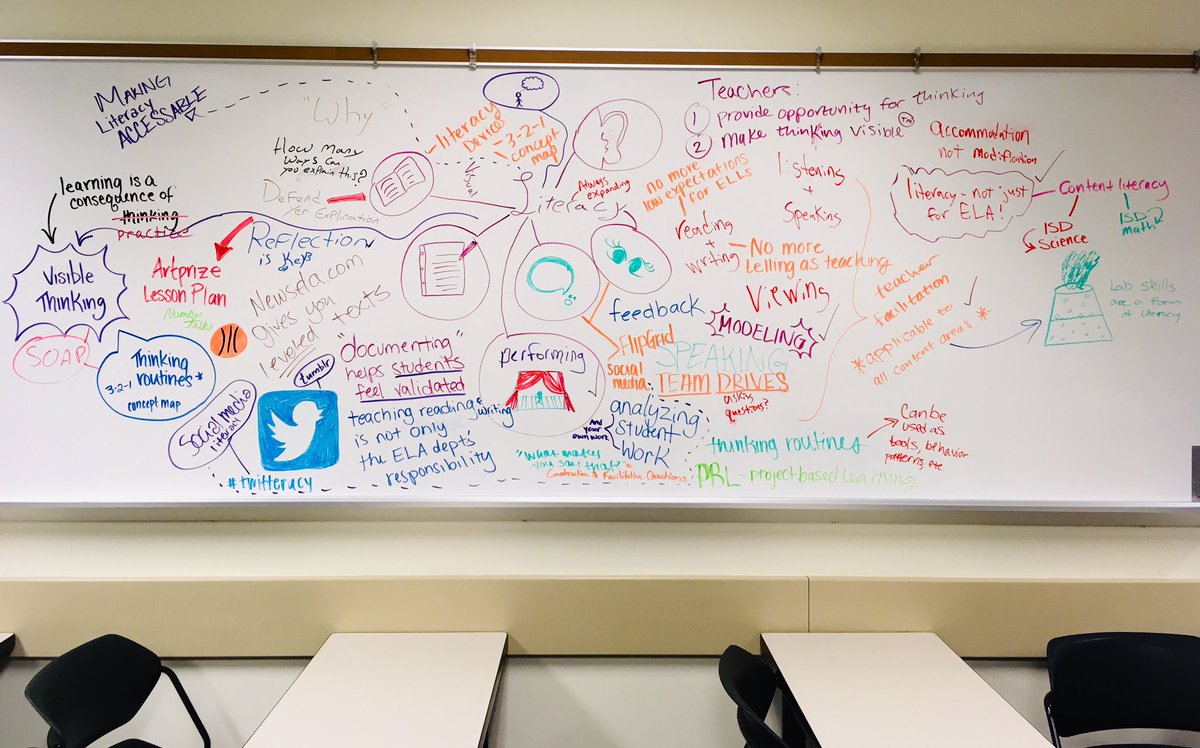 MAKING
Literacy
ACCESSABLE
"Why"
How Many
Ways Can
You explain this?
Defend
Yer Explination
literacy
Devices
3-2-1
concept
map
Literacy
Always
expanding
Teachers:
1 provide opportunity for thinking
2 make thinking visible TM
accommodation
not modification
no more
low expectations
for ELLs
listening
+
Speaking
literacy - not just
for ELA!
Content literacy
ISD
Science
ISD
math
learning is a
consequence of
thinking
practice
Visible
Thinking
Artprize
Lesson Plan
Number
talks
REFlECTION
is Key
Newsela.com
gives you
leveled texts
reading
+
writing
No more
telling as teaching
Viewing
MODELING
teacher
facilitation
*applicable to *
all content areas
Lab skills
are a form
of literacy
SOAP
Thinking
routines*
3-2-1
concept map
Social media
literacy
tumblr
#twitteracy
"documenting"
helps students
feel validated
teaching reading & writing
is not only
the ELA dept's
responsibility
performing
feedback
FlipGrid
Social
media:
SPEAKING
TEAM DRIVES
asking
questions?
And
your
own work
analyzing
Student
Work
"What makes
you say that"
& Facilitative Questions
thinking routines
Can be
used as
tools, behavior
patterns, etc
PBL - project based learning